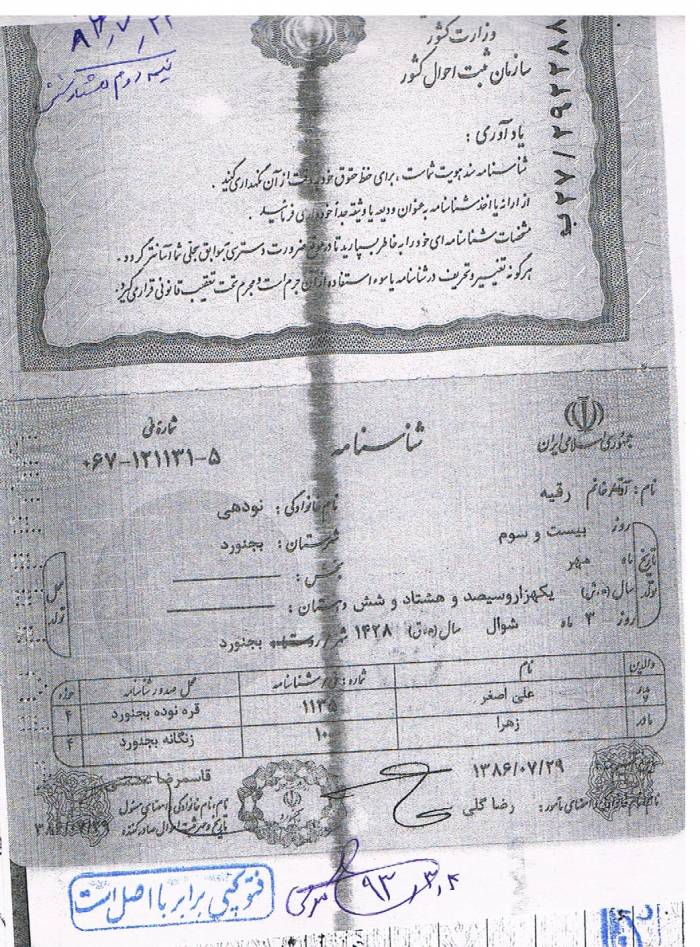 ۸۶/۷/۲۲
نیمه دوم هشتاد و شش
وزارت کشور
سازمان ثبت احوال کشور
ب ۲۷/۲۹۲۲۸۸
یادآوری :
شناسنامه سند هویت شماست ، برای حفظ حقوق خود دقت از آن نگهداری کنید .
از ارائه یا اخذ شناسنامه به عنوان ودیعه یا وثیقه جداً خودداری فرمائید .
مشخصات شناسنامه ای خود را به خاطر بسپارید تا در مواقع ضرورت دسترسی به سوابق سجلی شما آسانتر گردد .
هرگونه تغییر و تحریف در شناسنامه یا سوء استفاده از آن جرم است و مجرم تحت تعقیب قانونی قرار می گیرد.
جمهوری اسلامی ایران
شناسنامه
شماره ملی
۰۶۷-۱۲۱۱۳۱-۵
نام : آقا/خانم رقیه
نام خانوادگی : نودهی
تاریخ تولد
روز بیست و سوم
ماه مهر
سال (ه.ش) یکهزاروسیصد و هشتاد و شش
روز ۳ ماه شوال سال (ه.ق) ۱۴۲۸
محل تولد
شهرستان : بجنورد
بخش :
دهستان :
شهر/روستا بجنورد
والدین نام شماره : ملی/شناسنامه محل صدور شناسنامه حوزه
پدر علی اصغر ۱۱۳۵ قره نوده بجنورد ۴
مادر زهرا ۱۰ زنگانه بجنورد ۴
۱۳۸۶/۰۷/۲۹
نام،نام خانوادگی و امضای مامور : رضا گلی
قاسمرضا
نام،نام خانوادگی،امضای مسئول
تاریخ و مهر ثبت احوال صادرکننده
۱۳۸۶/۰۷/۲۹
۹۳،۳،۴
فتوکپی برابر با اصل است